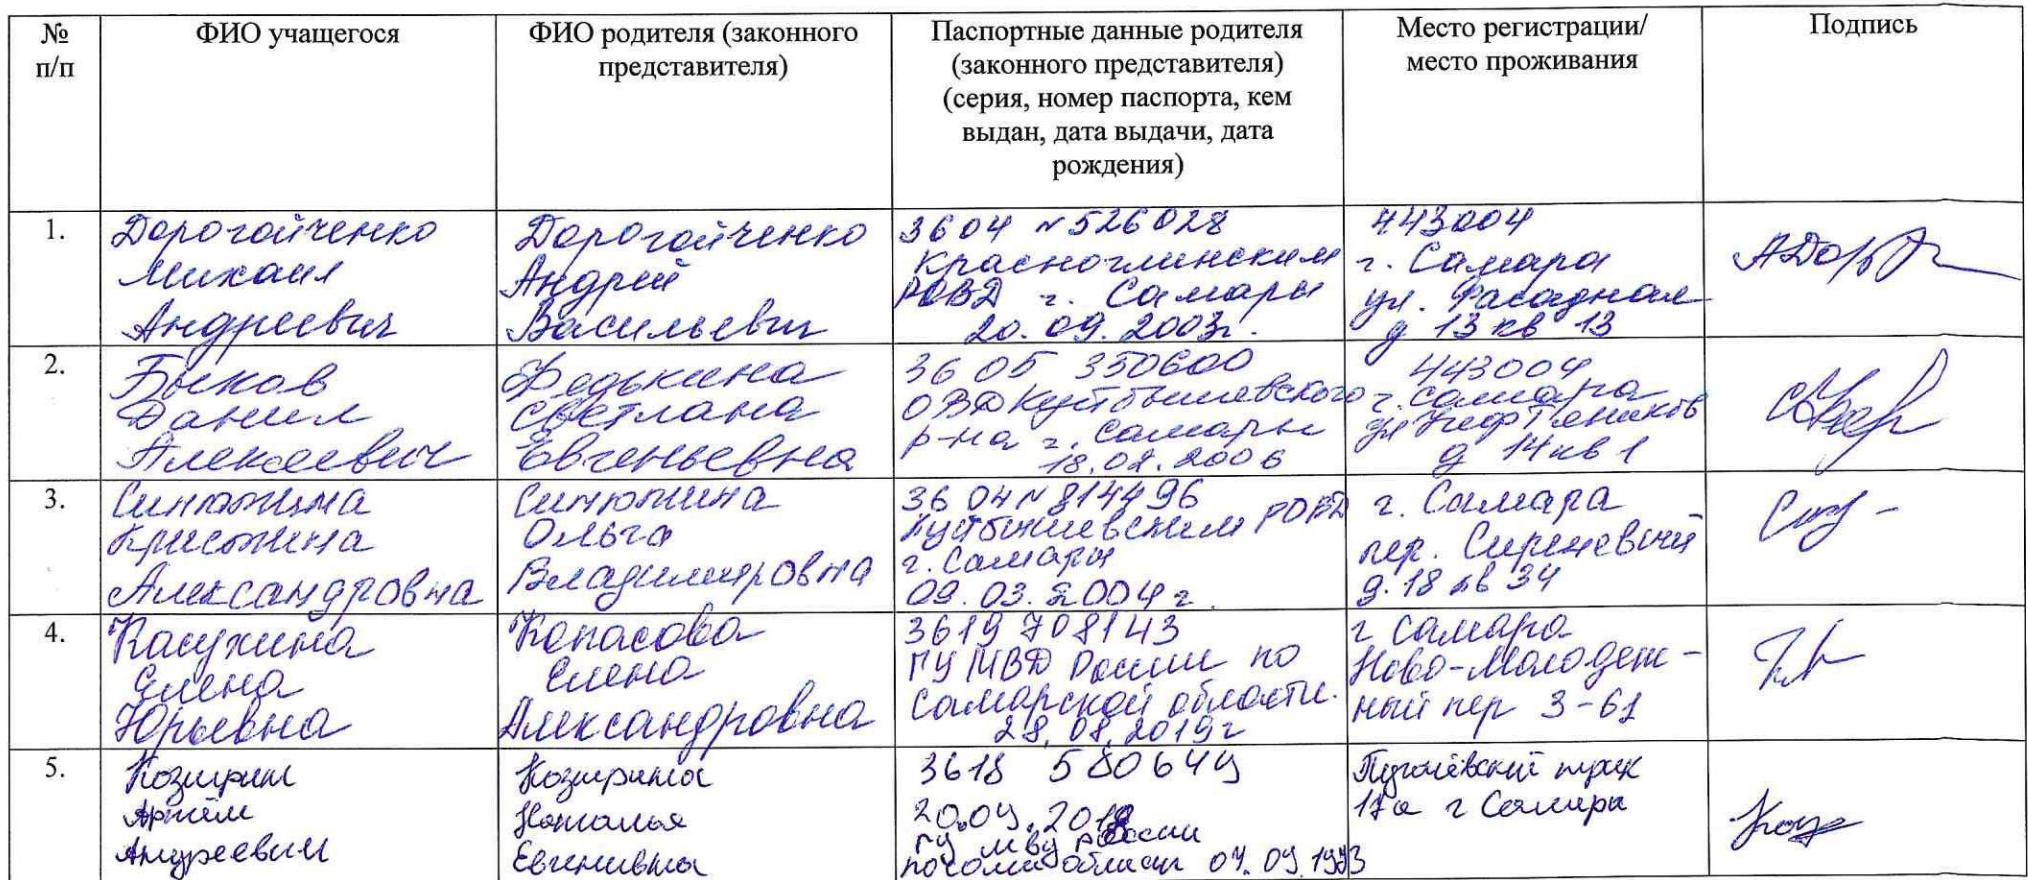 № п/п
ФИО учащегося
ФИО родителя (законного
представителя)
Паспортные данные родителя
(законного представителя)
(серия, номер паспорта, кем
выдан, дата выдачи, дата
рождения)
Место регистрации/
место проживания
Подпись
1.
Дорогойченко
Михаил
Андреевич
Дорогойченко
Андрей
Васильевич
3604 №526028
Красноглинским
РОВД г. Самары
20.09.2003г.
443004
г. Самара
ул. Рассадная
д 13 кв 13
2.
Быков
Данил
Алексеевич
Федькина
Светлана
Евгеньевна
3605 350600
ОВД Куйбышевского
р-на г. Самары
18.02.2006
443004
г. Самара
ул Нефтяников
д 14 кв 1
3.
Синюжина
Кристина
Александровна
Синюшина
Ольга
Владимировна
3604 № 814496
Куйбышевским РОВД
г. Самары
09.03.2004 г.
г. Самара
пер. Сиреневый
д. 18 кв 34
4.
Касухина
Елена
Юрьевна
Копасова
Елена
Александровна
3619 708143
ГУ МВД России по
Самарской области.
28.08.2019 г
г Самара
Ново-Молодеж-
ный пер 3-61
5.
Козирин
Артём
Андреевич
Козирина
Наталья
Евгенивна
3618 580649
20.09.2018
ГУ МВД России
по Сам области 04.09.1993
Пугачёвский тракт
17а г Самара